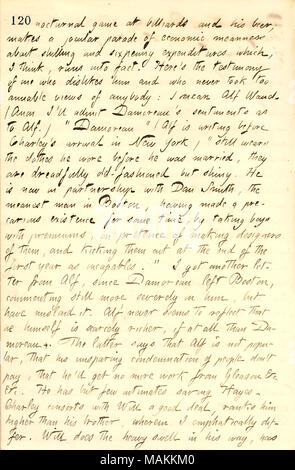 120
nocturnal game at billiards and his beer,
makes a peculiar parade of economic meanness
about shilling and sixpenny expenditures which,
I think, runs into fact. Here's the testimony
of one who dislikes him and who never took too
amiable views of anybody: I mean Alf Waud.
(Anon I'll adjoin Damoreau's sentiments as
to Alf.) "Damoreau" (Alf is writing before
Charley's arrival in New York) "still wears
the clothes he wore before he was married, they
are dreadfully old-fashioned but shiny. He
is now in partnership with Dan Smith, the
meanest man in Boston, having made a pre-
carious existence for some time by taking boys
with premiums on pretence of making designers
of them, and kicking them out at the end of the
first year as incapables." I got another let-
ter from Alf, since Damoreau left Boston,
commenting still more severely on him, but
have mislaid it. Alf never seems to reflect that
he himself is scarcely richer, if at all than Da-
moreau. The latter says that Alf is not popu-
lar, that his unsparing condemnation of people don't
pay, that he'd get no more work from Gleason &c
&c. He has but few intimates saving Hayes.
Charley consorts with Will a good deal, ranks him
higher than his brother, wherein I emphatically dif-
fer. Will does the heavy swell in his way, has
alamy
Image ID: MAKKM0
www.alamy.com